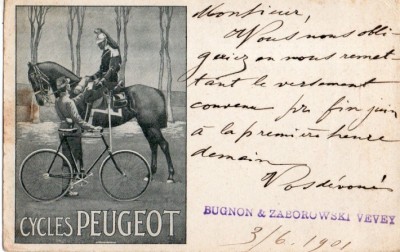 CYCLES PEUGEOT
Monsieur,
Vous nous obli-
geriez en nous remet-
tant le versement
convenu pr fin juin
à la première heure
demain
Vos dévoués
BUGNON & ZABOROWSKI VEVEY
3/6 1901